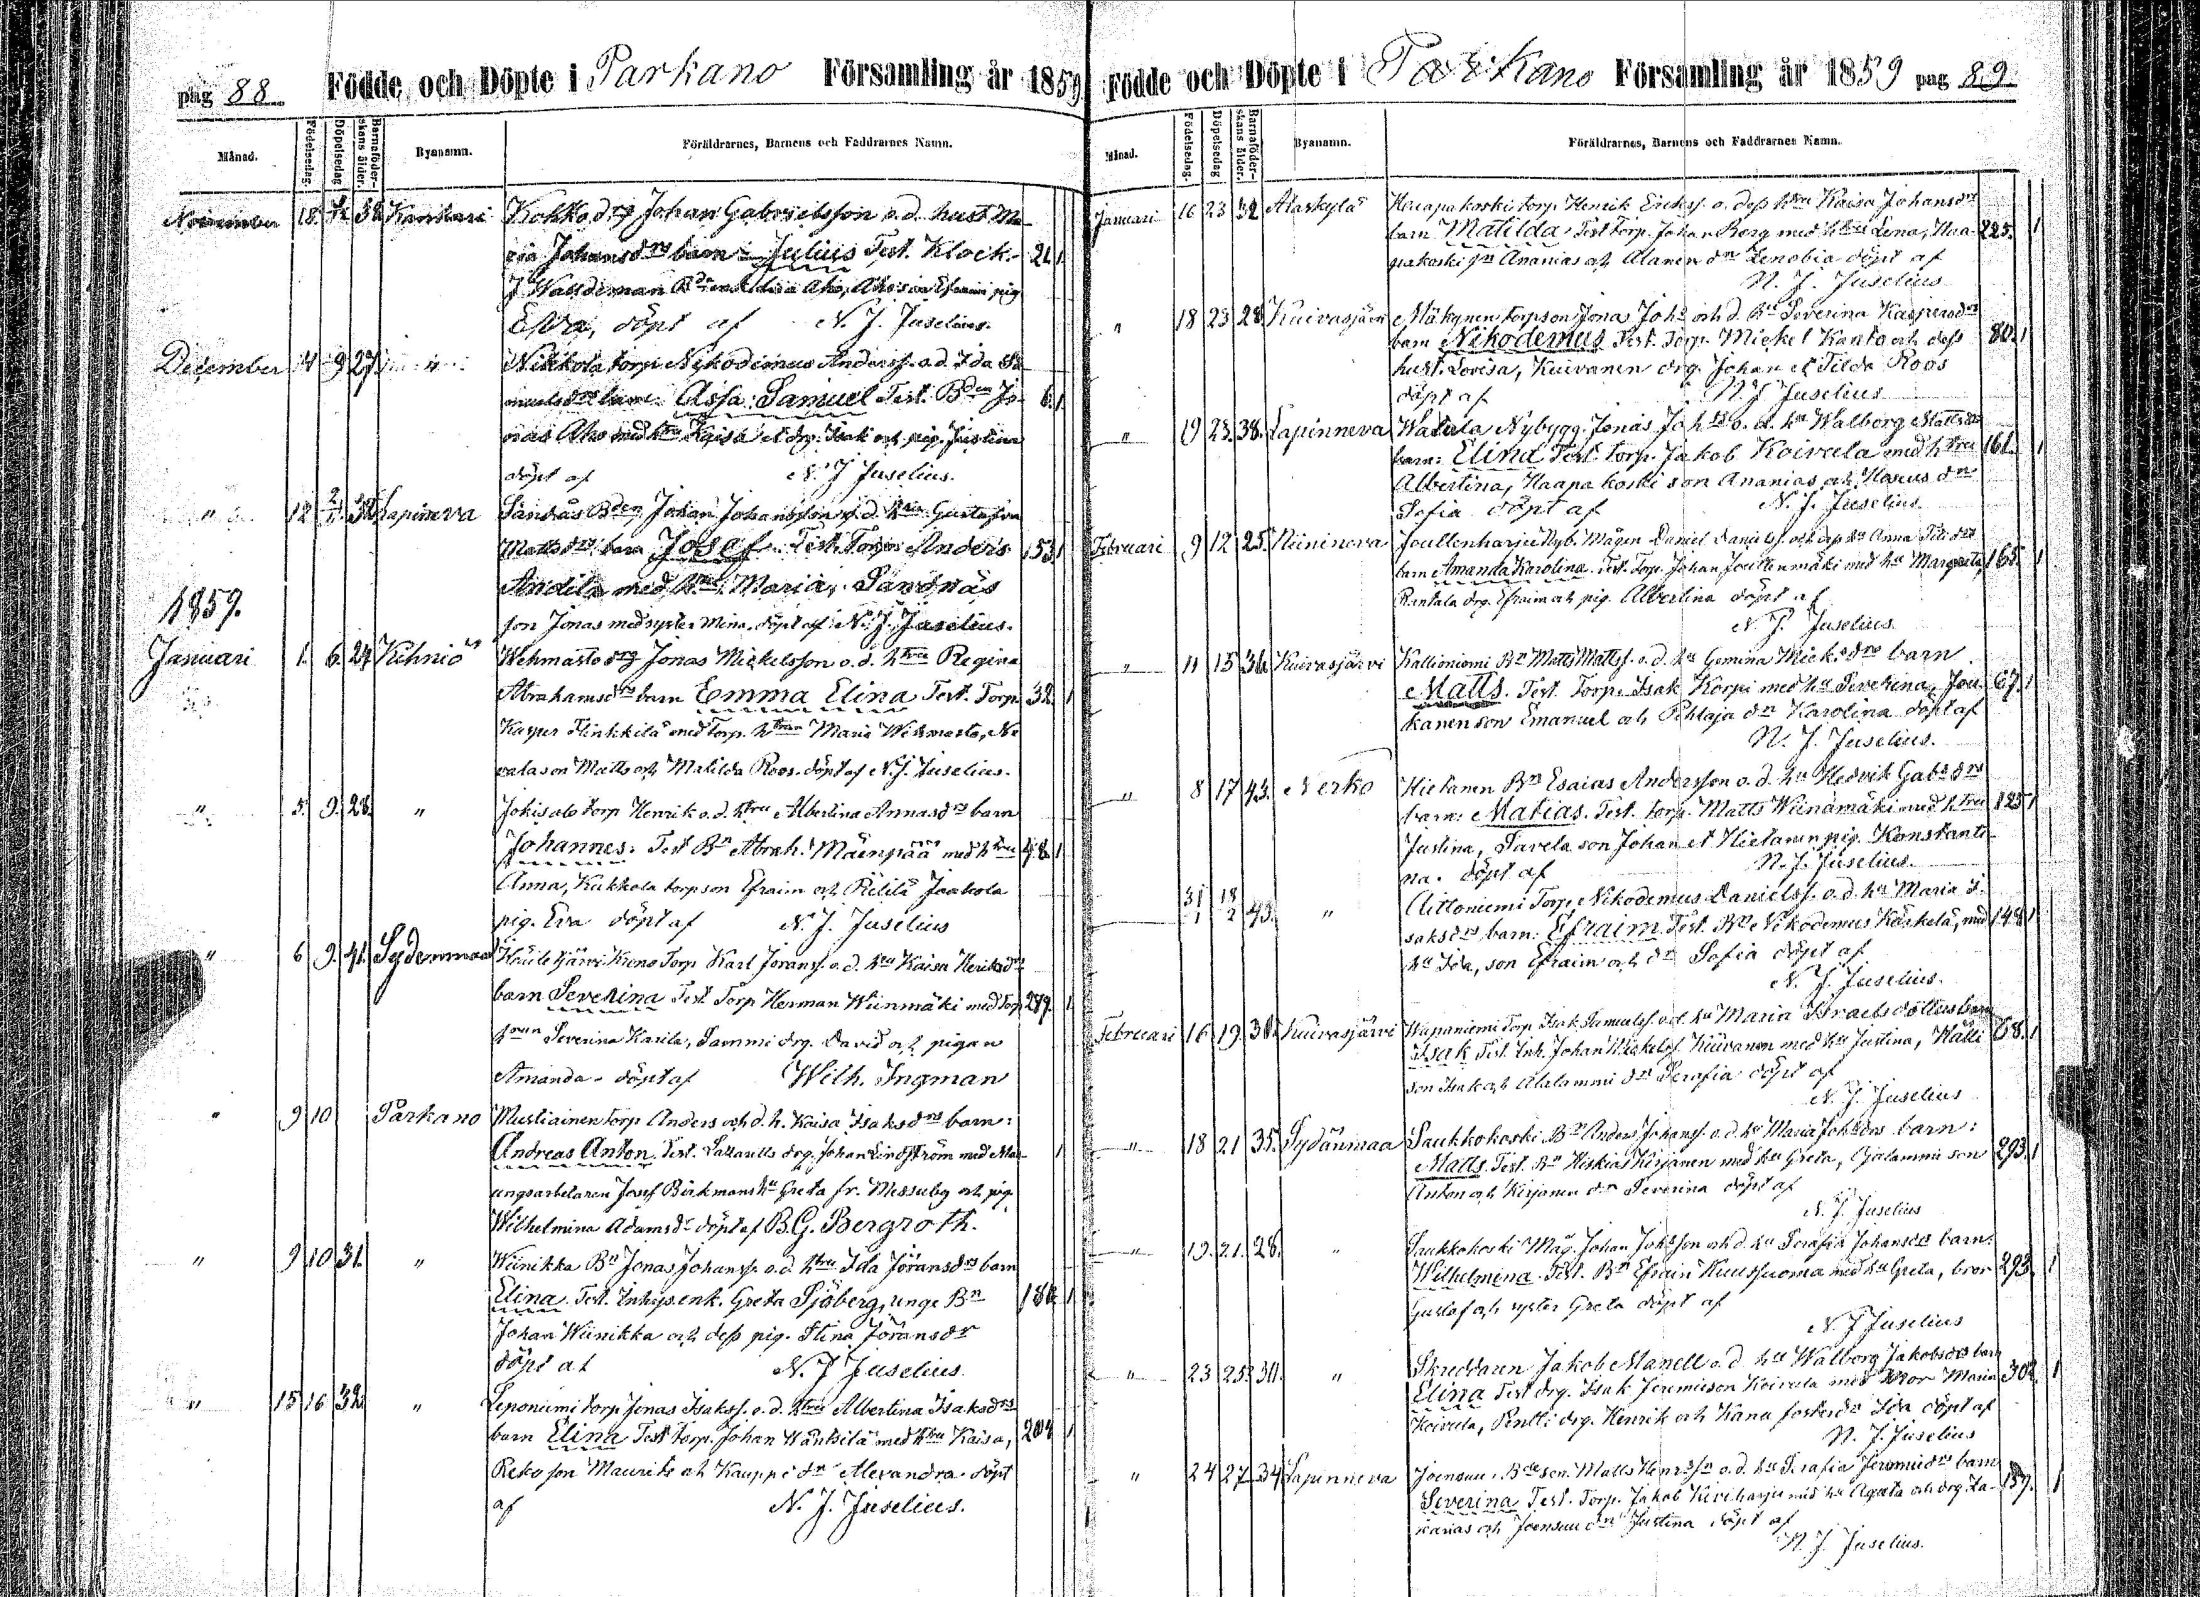 pag 88 Födde och Döpte i Parkano Församling år 1859
Månad. Födelsedag. Döpelsedag Barnaföder-skans ålder. Byanamn. Föräldrarnes, Barnens och Faddrarnes Namn.
November 18. 32 Kankari Kokko drg Johan Gabrielsson o.d. hust. Ma
ria Johansdrs barn Julius Test. Klock. 21 1
J Waldeman enk Aho, Efraim pig
Eva, döpt af N. J. Juselius.
December 4 9 27 " Nikkola torp Nikodemus Anderss. o.d. Ida Sa
muelsdrs barn Assa Samuel Test. Bden Jo- 6 1
nas Aho med hru Kaisa et drg. Isak och pig. Justina
döpt af N. J Juselius.
" 12 2/1 32 Lapineva Sandås Bden Johan Johansson o.d. hru Gustafva
Mattsdrs barn Josef Test. Torp Anders 153 1
Andila med hru Maria, Sandnäs
son Jonas med syster Mina. döpt af N. J. Juselius.
1859.
Januari 1. 6. 27 Kihniö Wehmasto drg Jonas Mickelsson o.d. hru Regina
Abrahamsdrs barn Emma Elina Test. Torp 32 1
Kasper Flinkkilä med Torp. hrun Maria Wehmasto, Ne
valason Matts och Matilda Roos. döpt af N. J. Juselius.
" 5. 9. 28. " Jokisalo torp Henrik o.d. hru Albertina Annasdrs barn
Johannes. Test Bn Abrah. Mäenpää med hru 48 1
Anna, Kukkola torpson Efraim och Pililä Jaakola
pig. Eva döpt af N. J. Juselius
" 6 9. 41. Sydenmaa Torp Karl Jöranss. o.d. hru Kaisa Heriksdr
barn Severina Test Torp Herman Wiinmäki med Torp 289. 1
hrun Severina Karila, Sammi drg. David och pigan
Amanda - döpt af Wilh. Ingman
" 9 10 Parkano Mustiainen torp Anders och d. h. Kaisa Isaksdrs barn:
Andreas Anton. Test. Lazaretts drg. Johan Lindström med Mal- 1
ungsarbetaren Josef Birkmans hru Greta fr. Messuby och pig.
Wilhelmina Adamsdr döpt af B. G. Bergroth.
" 9 10 31. " Wiinikka Bn Jonas Johanss. o.d. hru Ida Jöransdrs barn
Elina. Test. Inhys.enk. Greta Sjöberg, unge Bn 186 1
Johan Wiinikka och dess pig. Stina Jöransdr
döpt af N. J Juselius.
" 15 16 32. " Leponiemi torp Jonas Isakss. o.d. hru Albertina Isaksdrs
barn Elina Test torp. Johan Wäntsilä med hru Kaisa, 204 1
Reko son Maurits och Kauppi dr Alexandra. döpt
af N. J. Juselius.
Födde och Döpte i Parkano Församling år 1859 pag 89
Månad. Födelsedag. Döpelsedag Barnaföder-skans ålder. Byanamn. Föräldrarnes, Barnens och Faddrarnes Namn.
Januari 16 23 32 Alaskylä Haapakoski torp. Henrik Erikss. o. dess hru Kaisa Johansdrs
barn Matilda Test torp. Johan Borg med hru Lena, Haa- 225. 1
pakoski sn Ananias och Alanen dr Zenobia döpt af
N. J. Juselius
" 18 23 28 Kuivasjärvi Mäkynen torpson Jonas Johs och d. hu Severina Kaspersdrs
barn Nikodemus Test. Torp. Mickel Kanto och dess 80. 1
hust. Lovisa, Kuivanen drg. Johan et Tilda Roos
döpt af N. J Juselius
" 19 23. 38. Lapinneva Watula Nybygg. Jonas Johss o. d. hu Walborg Mattsdrs
barn: Elina Test. torp. Jakob Koivula med hru 161. 1
Albertina, Haapakoski son Ananias och dr
Sofia döpt af N. J. Juselius.
Februari 9 12 25. Niinineva Nyb. Mågen Daniel Daniels. och dess hu Anna
barn Amanda Karolina. Test. Torp. Johan Jouttenmäki med hu Margareta 165. 1
Rantala drg. Efraim och pig. Albertina döpt af
N. J. Juselius.
" 11 15 36. Kuivasjärvi Kallioniemi Bn Matts Mattss. o. d. hu Gemina Mick.sdrs barn
Matts. Test. Torp. Isak Korpi med hu Severina, Jou- 67. 1
kanen son Emanuel och Pihlaja dr Karolina döpt af
N. J. Juselius.
" 8 17 43. Nerko Hietanen Bns Esaias Andersson o.d. hu Hedvik Gabsdrs
barn: Matias. Test. torp. Matts Wiinämäki med hru 125 1
Justina, Savela son Johan et Hietanen pig. Konstanti
na. döpt af N. J. Juselius.
31/1 18/2 43. " Aittoniemi Torp. Nikodemus Danielss. o.d. hu Maria I-
saksdrs barn: Efraim. Test. Bn Nikodemus Käskelä, med 148 1
hu Ida, son Efraim och dr Sofia döpt af
N. J. Juselius.
Februari 16 19. 38. Kuivasjärvi Torp. Isak Samuelss. o.d. hu Maria Israelsdotters barn
Isak Test. Inh. Johan Mickelss. Kuivanen med hu Justina, Kätti 68. 1
son Isak och Alalammi dr Serafia döpt af
N. J. Juselius
" 18 21 35. Sydänmaa Saukkokoski Bn Anders Johanss. o.d. hu Maria Johsdrs barn:
Matts. Test. Bn Hiskias Kirjanen med hu Greta, Ojalammi son 293. 1
Anton och Kirjanen dr Severina döpt af
N. J. Juselius
" 19. 21. 28. " Saukkokoski Måg. Johan Johsson och d. hu Serafia Johansdrs barn:
Wilhelmina. Test. Bn Efraim Kuussuoma med hu Greta, bror 293. 1
Gustaf och syster Greta döpt af
N. J Juselius
" 23 25. 30. " Skreddaren Jakob Manell o.d hu Walborg Jakobsdrs barn
Elina Test drg. Isak Jeremiison Koivula med mor Maria 302. 1
Koivula, Pentti drg. Henrik och Kana fosterdr Ida döpt af
N. J. Juselius
" 24 27. 34 Lapinneva Joensuu. Bdeson Matts Henrssn o. d. hu Serafia Jeremiidrs barn
Severina Test. Torp. Jakob Kiviharju med hu Agata och drg. Za- 159. 1
karias och Joensuu drn Justina döpt af
N. J. Juselius.